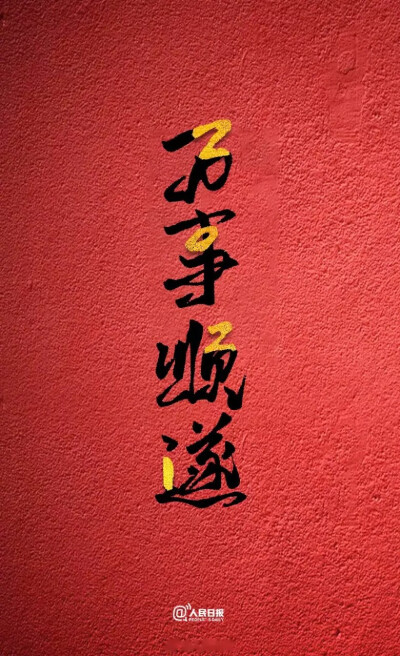 万事顺遂
@人民日报
PEOPLE'S DAILY